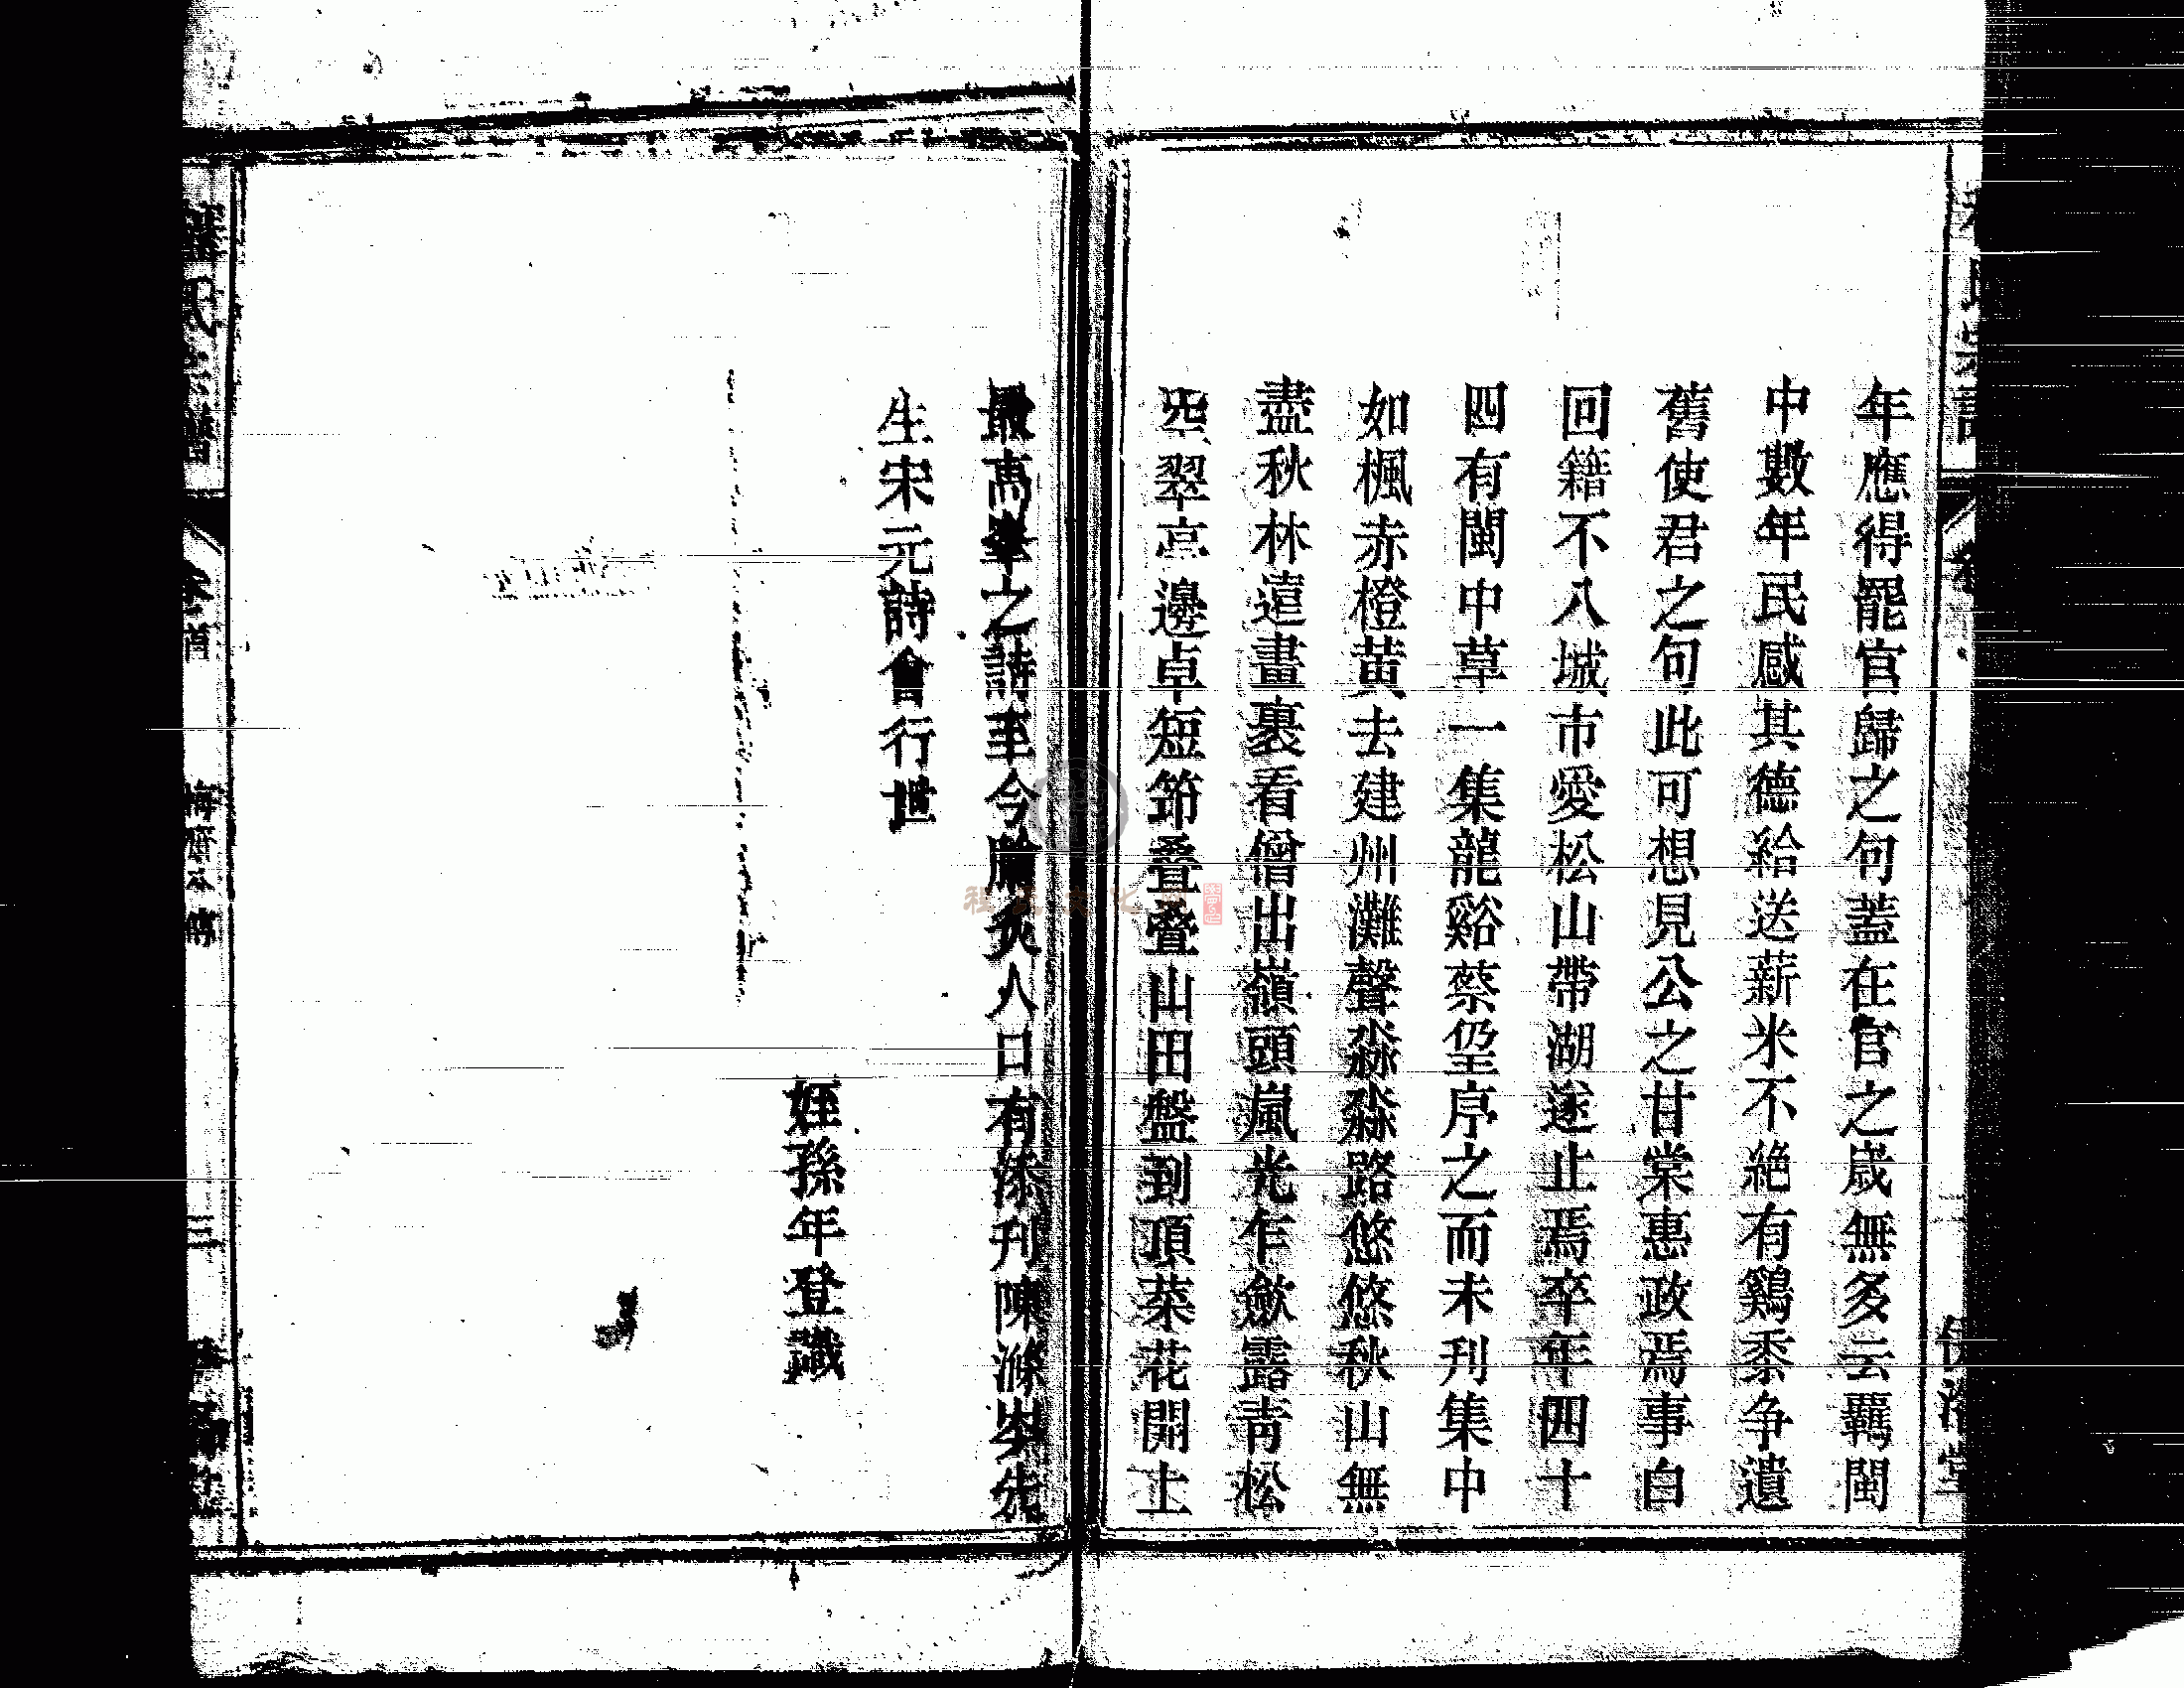 年應得罷官歸之句蓋在官之歲無多云羇閩
中數年民感其德給送薪米不絶有鷄黍争遺
舊使君之句此可想見公之甘棠惠政焉事白
回籍不入城市愛松山帶湖遂止焉卒年四十
四有閩中草一集龍谿蔡㘴序之而未刋集中
如楓赤橙黄去建州灘聲淼淼路悠悠秋山無
盡秋林遠畫裏看僧出嶺頭嵐光乍斂露青松
翠亭邊卓短笻叠叠山田盤到頂菜花開土
最高峯之詩至今膾炙人口有添刋陳滌岑先
生宋元詩會行世
姪孫年登識
卷首
三